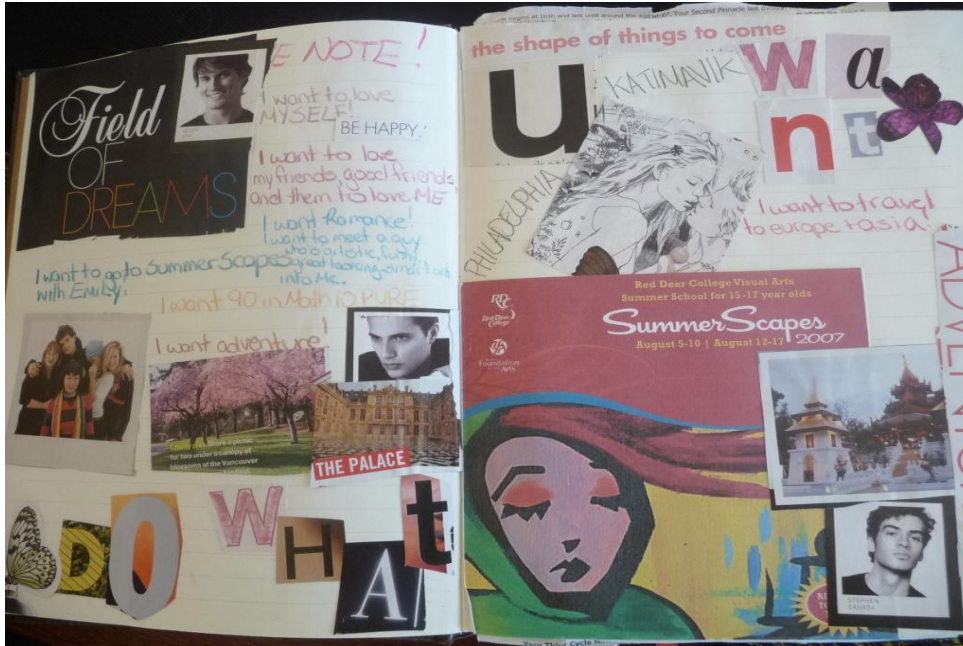 Field
OF
DREAMS
E NOTE!
I want to love
MYSELF!
BE HAPPY.
I want to love
my friends, good friends,
and them to love ME
I want Romance!
I want to meet a guy
who is artistic, funny,
great looking, smart and
into Me.
I want to go to Summer Scapes
with Emily!
I want 90 in Math 10 PURE
I want adventure!
Share a picnic
for two under a canopy of
blossoms at the Vancouver
THE PALACE
DO WHAt
the shape of things to come
u want
KATIMAVIK
PHILADELPHIA
I want to travel
to europe + asia.
ADVENTUR
Red Deer College Visual Arts
Summer School for 15-17 year olds
SummerScapes
2007
August 5-10 | August 12-17
RDC
Red Deer
College
Foundation
Arts
STEPHEN
CANADA
Your Third Cycle